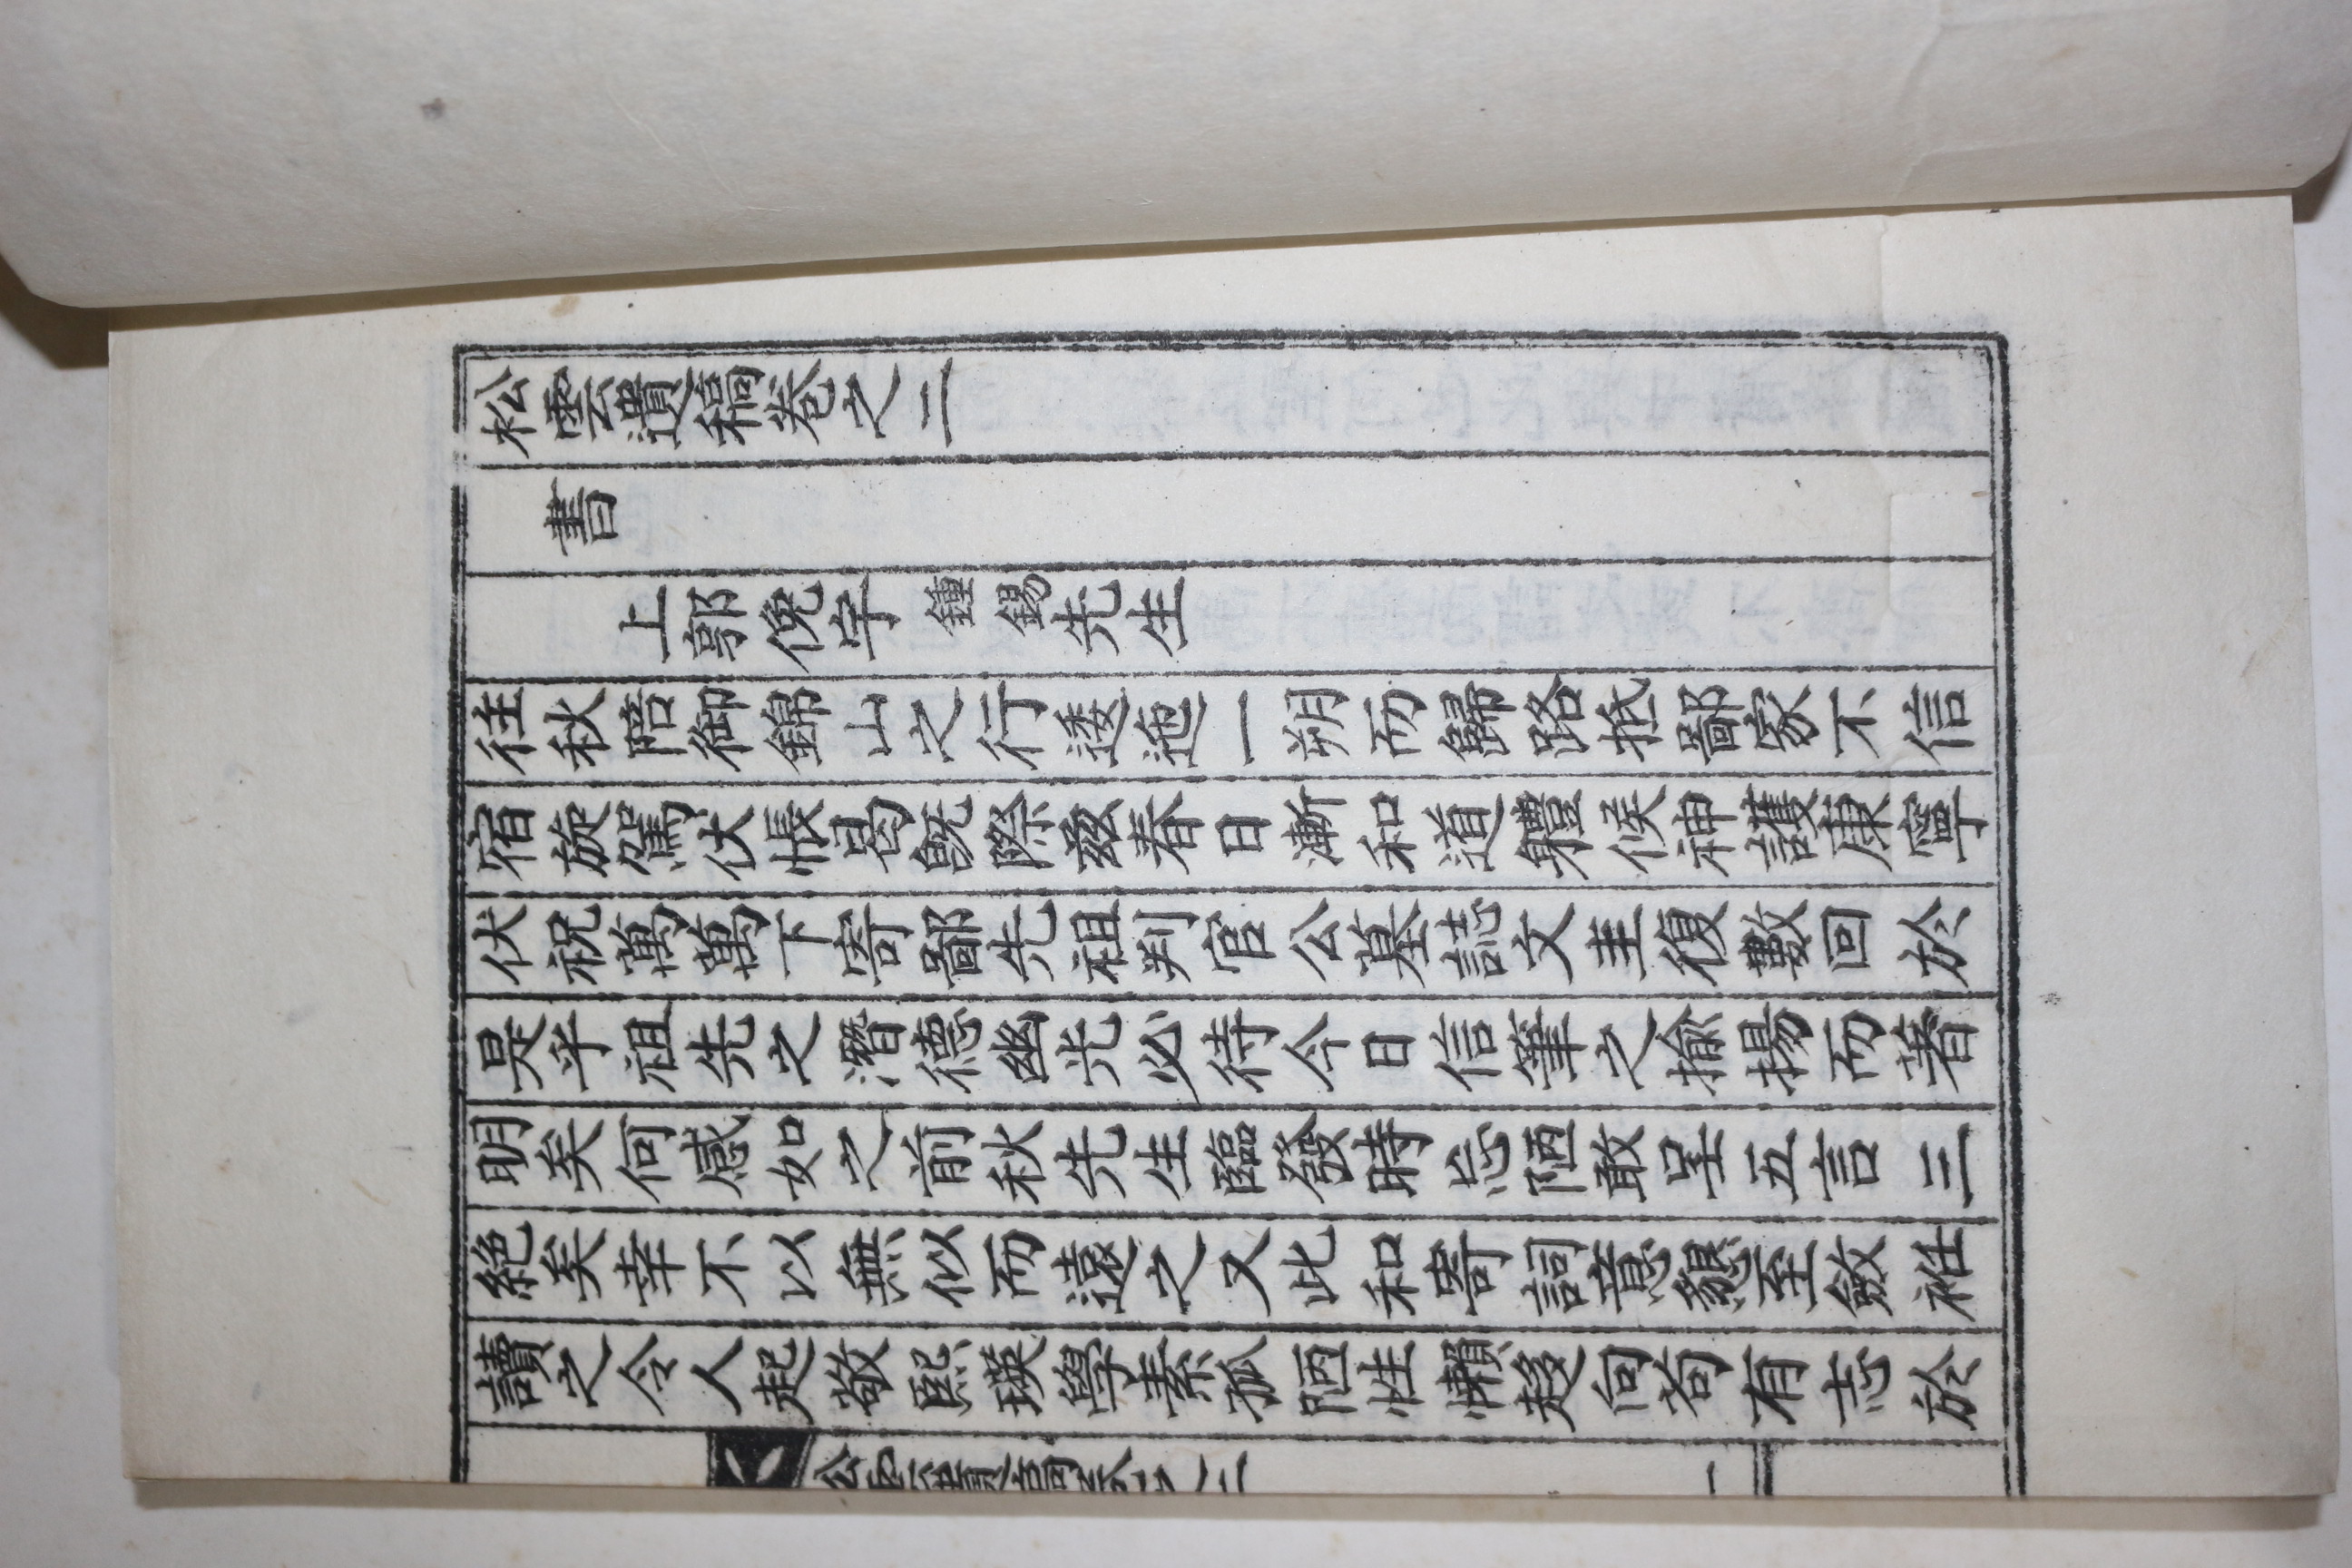 松雲遺稿卷之二
書
上郭俛宇鍾錫先生
往秋陪御錦山之行逶迤一朔而歸路抵鄙家不信
宿旋駕伏悵曷旣際玆春日漸和道軆候神護康寧
伏祝萬萬下寄鄙先祖判官公墓誌文圭復數回於
是乎祖先之潛德幽光必待今日信筆之揄揚而著
明矣何感如之前秋先生臨發時忘陋敢呈五言二
絶矣幸不以無似而遠之又此和寄詞意懇至斂袵
讀之令人起敬熙瑛學素孤陋性懶趍向苟有志於
松雲遺稿卷之二 一